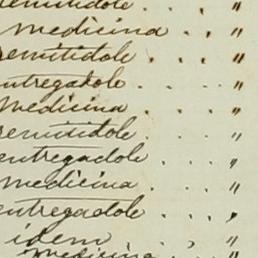 remitidole . . . "
medicina . . . "
remitidole . . . "
entregadole . . . "
Medicina . . . "
remitidole . . . "
entregadole . . . "
medicina . . . "
entregadole . . . "
idem . . "
medicina . . "